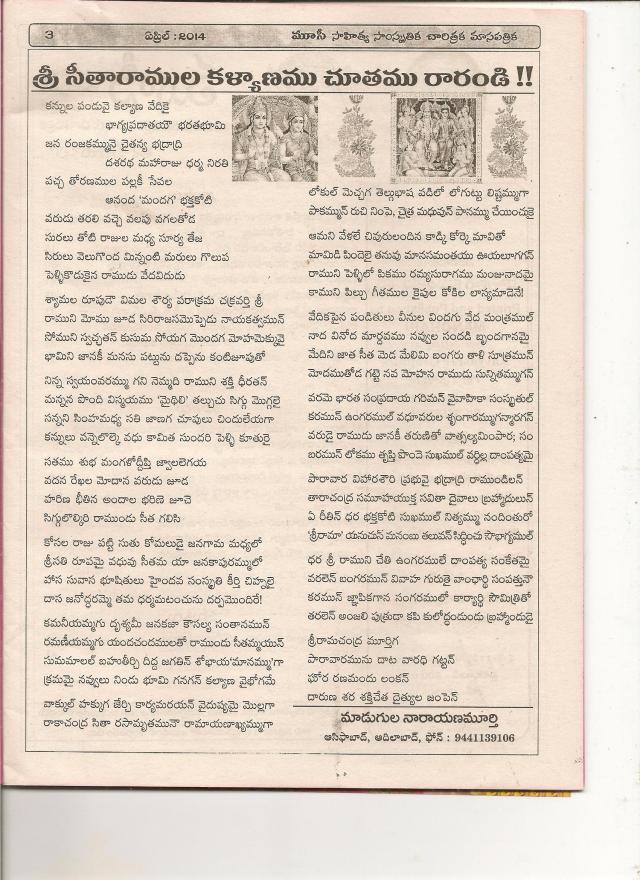 3 ఏప్రిల్ : 2014 మూసీ సాహిత్య సాంస్కృతిక చారిత్రక మాసపత్రిక
శ్రీ సీతారాముల కళ్యాణము చూతము రారండి !!
కన్నుల పండువై కల్యాణ వేదికై
భాగ్యప్రదాతయౌ భరతభూమి
జన రంజకమ్మునై చైతన్య భద్రాద్రి
దశరథ మహారాజు ధర్మ నిరతి
పచ్చ తోరణముల పల్లకీ సేవల
ఆనంద 'మందగ' భక్తకోటి
వరుడు తరలి వచ్చె వలపు వగలతోడ
సురలు తోటి రాజుల మధ్య సూర్య తేజ
సిరులు వెలుగొంద మిన్నంటి మరులు గొలుప
పెళ్ళికొడుకైన రాముడు వేదవిదుడు
శ్యామల రూపుడౌ విమల శౌర్య పరాక్రమ చక్రవర్తి శ్రీ
రాముని మోము జూడ సిరిరాజసమొప్పెడు నాయకత్వమున్
సోముని స్వచ్ఛతన్ కుసుమ సోయగ మొందగ మోహమెక్కువై
భామిని జానకీ మనసు పట్టును దప్పెను కంటిజూపుతో
నిన్న స్వయంవరమ్ము గని నెమ్మది రాముని శక్తి ధీరతన్
మన్నన పొంది విస్మయము 'మైథిలి' తల్చుచు సిగ్గు మొగ్గలై
సన్నని సింహమధ్య సతి జాణగ చూపులు చిందులేయగా
కన్నులు వన్నెలొల్కె వధు కామిత సుందరి పెళ్ళి కూతురై
సతము శుభ మంగళోద్దీప్తి జ్వాలలెగయ
వదన రేఖల మోదాన వరుడు జూడ
హరిణ భీతిన అందాల భరిణె జూచె
సిగ్గులొల్కిరి రాముండు సీత గలిసి
కోసల రాజు పట్టి సుతు కోమలుడై జనగామ మధ్యలో
శ్రీసతి రూపమై వధువు సీతమ యా జనకాపురమ్ములో
హాస సువాస భూషితులు హైందవ సంస్కృతి కీర్తి చిహ్నలై
దాస జనోద్ధరమ్మె తమ ధర్మమటంచును దర్పమొందిరే!
కమనీయమ్మగు దృశ్యమీ జనకజా కౌసల్య సంతానమున్
రమణీయమ్మగు యందచందములతో రాముండు సీతమ్మయున్
సుమమాలల్ బహుతీర్చి దిద్ద జగతిన్ శోభాయ'మానమ్ము'గా
క్రమమై నవ్వులు నిండు భూమి గనగన్ కల్యాణ వైభోగమే
వాక్కుల్ హక్కుగ జేర్చి కార్యమరయన్ వైదుష్యమై మొల్లగా
రాకాచంద్ర సితా రసామృతమునౌ రామాయణాఖ్యమ్ముగా
లోకుల్ మెచ్చగ తెల్గుభాష వడిలో లోగుట్టు లిష్టమ్ముగా
పాకమ్మున్ రుచి నింపె, చైత్ర మధువున్ పానమ్ము చేయించుకై
ఆమని వేళలే చివురులందిన కాడ్కి కోర్కె మావితో
మామిడి పిందెలై తనువు మానసమంతయు ఊయలూగగన్
రాముని పెళ్ళిలో పికము రమ్యసురాగము మంజునాదమై
కాముని పిల్పు గీతముల కైపుల కోకిల లాస్యమాడెనే!
వేదికపైన పండితులు వీనుల విందగు వేద మంత్రముల్
నాద వినోద మార్దవము నవ్వుల సందడి బృందగానమై
మేదిని జాత సీత మెడ మేలిమి బంగరు తాళి సూత్రమున్
మోదముతోడ గట్టె నవ మోహన రాముడు సున్నితమ్ముగన్
వరమె భారత సంప్రదాయ గరిమన్ వైవాహికా సంస్కృతుల్
కరమున్ ఉంగరముల్ వధూవరుల శృంగారమ్ముగన్మారగన్
వరుడై రాముడు జానకీ తరుణితో వాత్సల్యమింపార; సం
బరమున్ లోకము తృప్తి పొందె సుఖముల్ వర్ధిల్ల దాంపత్యమై
పారావార విహారశౌరి ప్రభువై భద్రాద్రి రాముండిలన్
తారాచంద్ర సమూహయుక్త సవితా దైవాలు బ్రహ్మాదులున్
ఏ రీతిన్ ధర భక్తకోటి సుఖముల్ నిత్యమ్ము నందింతురో
'శ్రీరామా' యనుచున్ మనంబు తలువన్ సిద్ధించు సౌభాగ్యముల్
ధర శ్రీ రాముని చేతి ఉంగరములే దాంపత్య సంకేతమై
వరలెన్ బంగరమున్ వివాహ గురుతై వాంఛార్థి సంపత్తునౌ
కరమున్ జ్ఞాపికగాన సంగరములో కార్యార్థి సౌమిత్రితో
తరలెన్ అంజలి పుత్రుడా కపి కులోద్ధండుండు బ్రహ్మాండుడై
శ్రీరామచంద్ర మూర్తిగ
పారావారమును దాట వారధి గట్టన్
ఘోర రణమందు లంకన్
దారుణ శర శక్తిచేత దైత్యుల జంపెన్
మాడుగుల నారాయణమూర్తి
ఆసిఫాబాద్, ఆదిలాబాద్, ఫోన్ : 9441139106